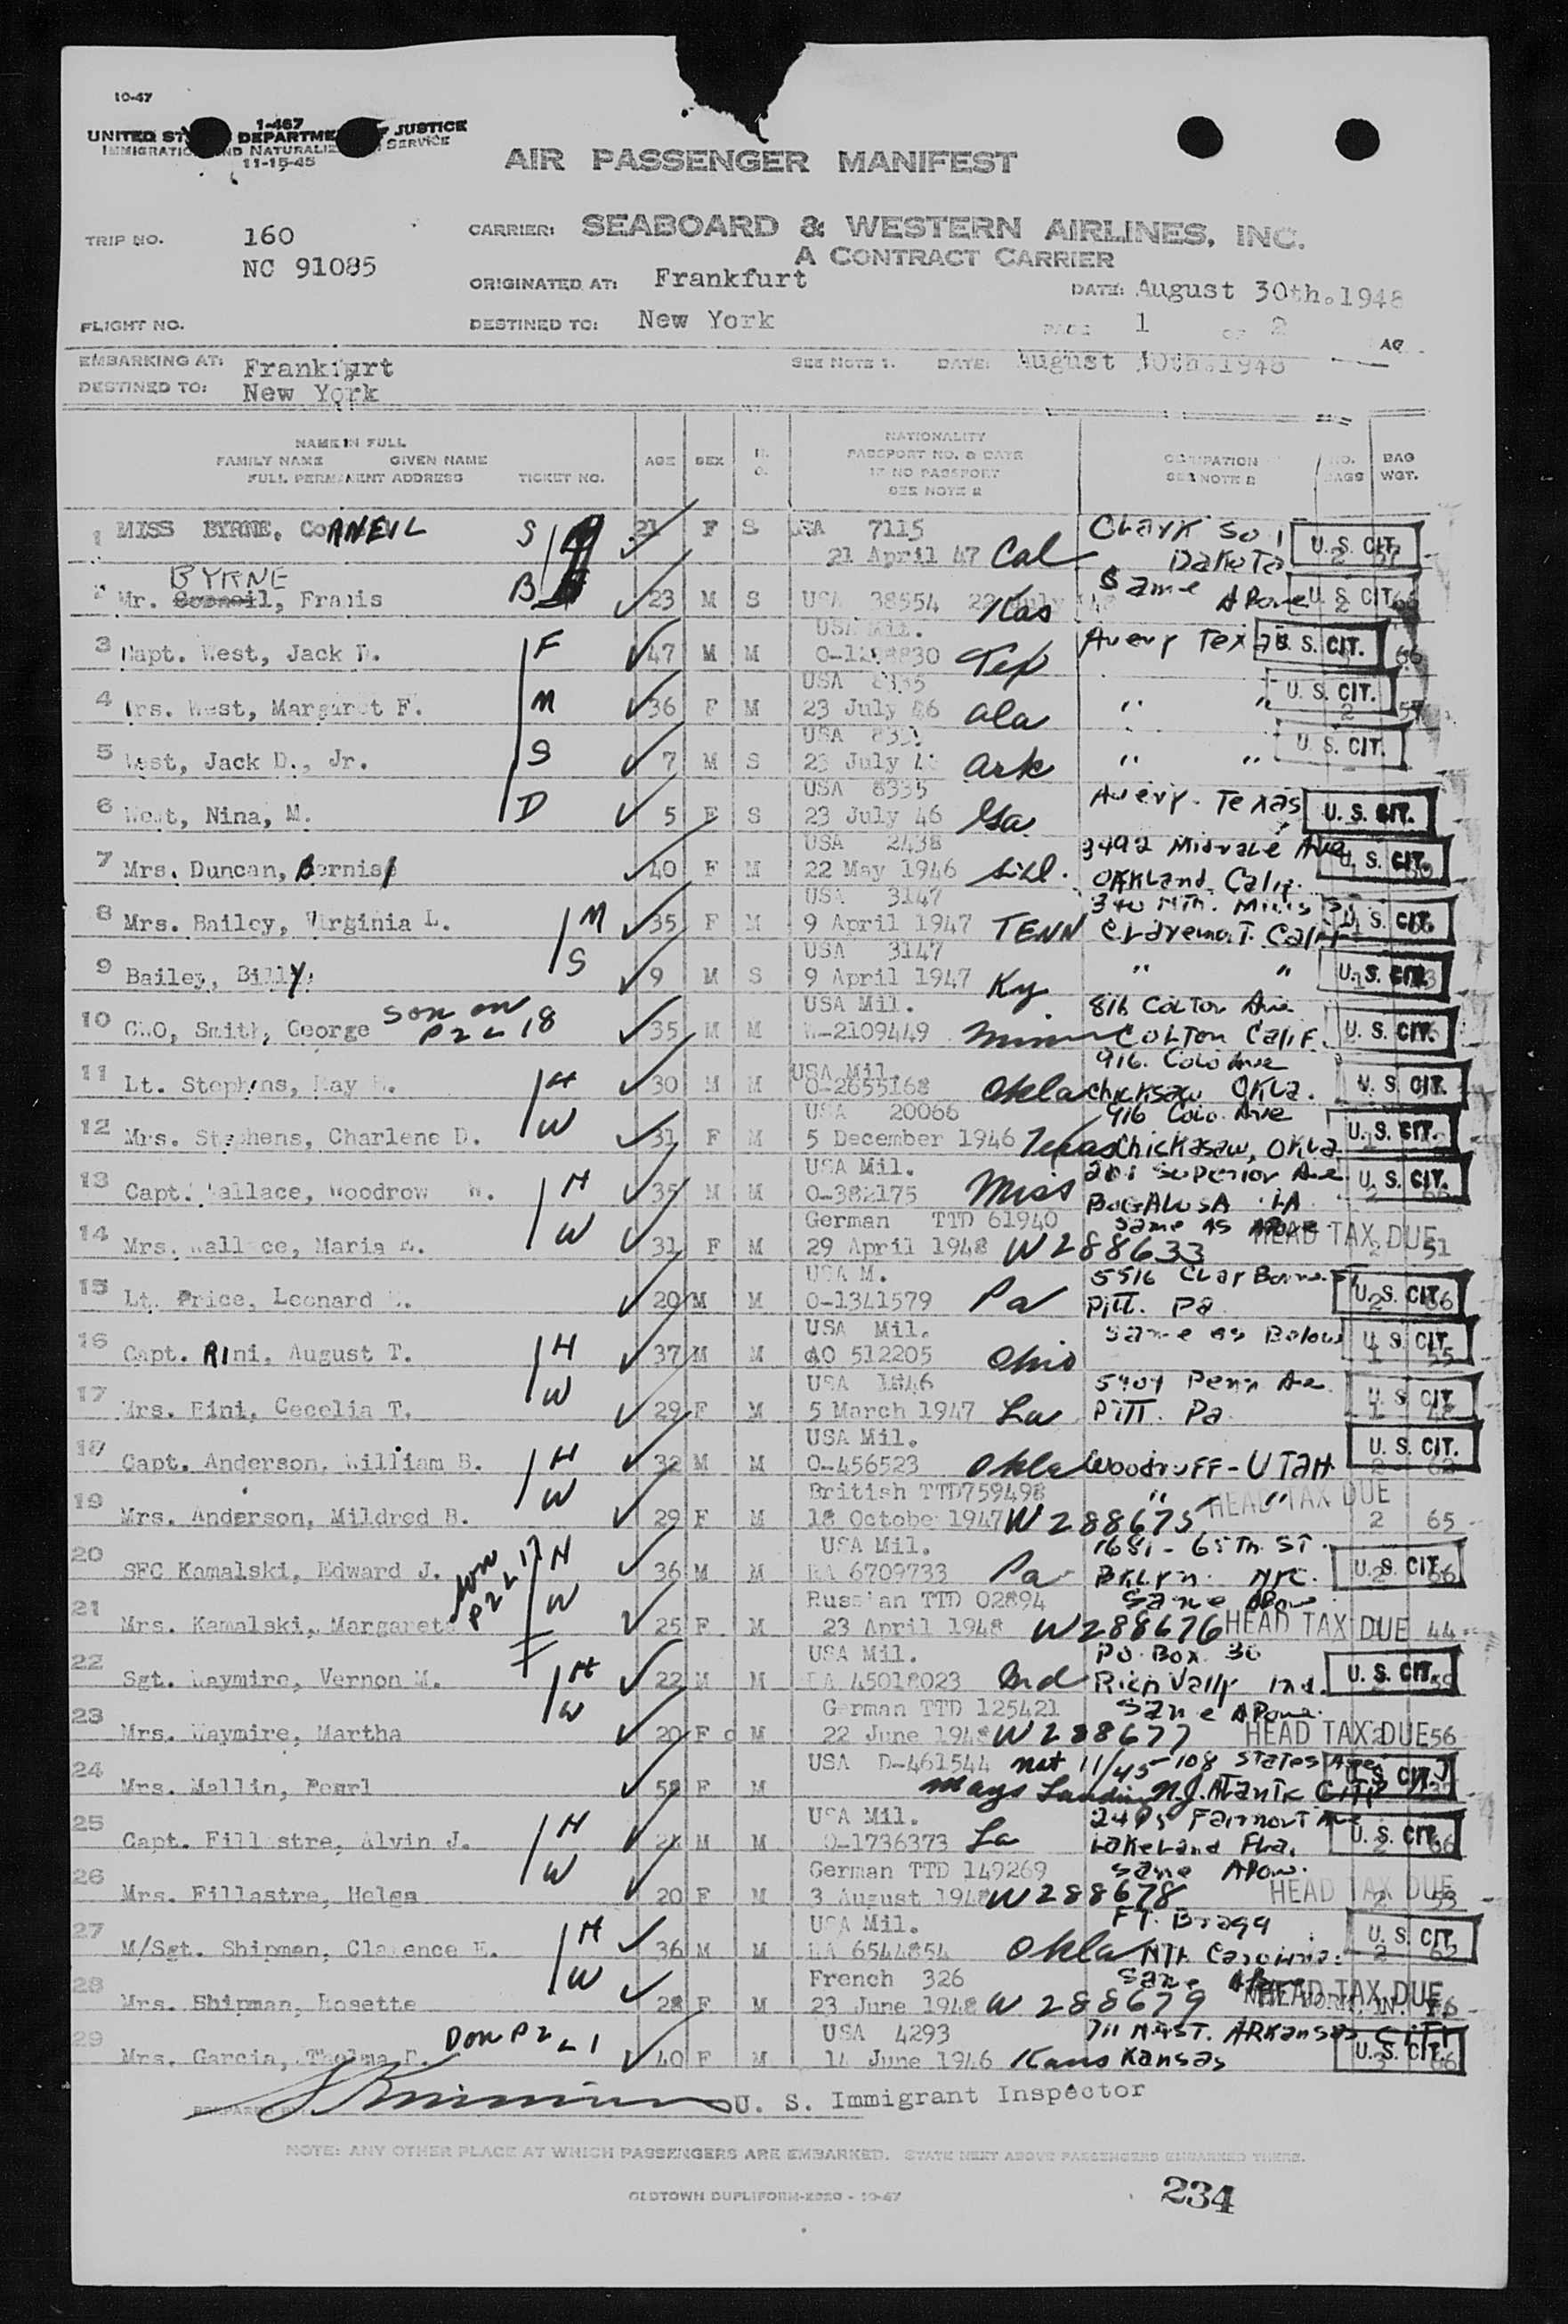 10-47
1-467
UNITED ST DEPARTME JUSTICE
IMMIGRATIO ND NATURALIZ SERVICE
11-15-45
AIR PASSENGER MANIFEST
TRIP NO. 160
NC 91085
CARRIER: SEABOARD & WESTERN AIRLINES, INC.
A CONTRACT CARRIER
ORIGINATED AT: Frankfurt DATE: August 30th.1948
FLIGHT NO. DESTINED TO: New York PAGE 1 OF 2
AG
EMBARKING AT: Frankfurt SEE NOTE 1. DATE: August 30th.1948
DESTINED TO: New York
NAME IN FULL
FAMILY NAME GIVEN NAME
FULL PERMANENT ADDRESS TICKET NO. AGE SEX
NATIONALITY
PASSPORT NO. & DATE
IF NO PASSPORT
SEE NOTE 2
OCCUPATION
SEE NOTE 2
NO. BAGS BAG WGT.
1 MISS BYRNE, CORNEIL S 21 F S USA 7115
21 April 47 Cal Clark So Dakota U. S. CIT.
BYRNE
2 Mr. Franis B 23 M S USA 38554 Kas Same Above U. S. CIT.
3 Capt. West, Jack D. F 47 M M USA Mil.
Tex Avery Texas U. S. CIT. 66
4 Mrs. West, Margaret F. M 36 F M USA 8335
23 July 46 Ala " " U. S. CIT. 2
5 West, Jack D., Jr. S 7 M S USA
23 July 46 Ark " " U. S. CIT.
6 West, Nina, M. D 5 F S USA 8335
23 July 46 Ga Avery. Texas U. S. CIT.
7 Mrs. Duncan, 40 F M USA 2438
22 May 1946 3492 Midvale Ave
Oakland, Calif. U. S. CIT.
8 Mrs. Bailey, Virginia L. M 35 F M USA 3147
9 April 1947 TENN 340 Nth. Mills St
Claremont Calif U. S. CIT.
9 Bailey, Billy S 9 M S USA 3147
9 April 1947 Ky " " U. S. CIT.
10 CWO, Smith, George Son on
P2 L 18 35 M M USA Mil.
W-2109449 Minn 816 Colton Ave
Colton Calif. U. S. CIT.
11 Lt. Stephens, Ray H 30 M M USA Mil.
O-2655168 Okla 916. Colo Ave
Chicksaw Okla. U. S. CIT.
12 Mrs. Stephens, Charlene D. W 31 F M USA 20066
5 December 1946 Texas 916 Colo. Ave
Chickasaw, Okla U. S. CIT.
13 Capt. Wallace, Woodrow W. H 35 M M USA Mil.
O-382175 Miss 201 Superior Ave
Bogalusa LA U. S. CIT.
14 Mrs. Wallace, Maria W 31 F M German TTD 61940
29 April 1948 W288633 Same as Above HEAD TAX DUE 2 51
15 Lt. Price, Leonard 20 M M USA M.
O-1341579 Pa
Pitt. Pa U. S. CIT. 2 66
16 Capt. Rini, August T. H 37 M M USA Mil.
AO 512205 Ohio Same as Below U. S. CIT. 1 55
17 Mrs. Rini, Cecelia T. W 29 F M USA 1846
5 March 1947 La 5404 Penn Ave.
Pitt. Pa U. S. CIT. 1
18 Capt. Anderson, William B. H 32 M M USA Mil.
O-456523 Okla Woodruff-Utah U. S. CIT. 2 62
19 Mrs. Anderson, Mildred B. W 29 F M British TTD759498
18 October 1947 W288675 " " HEAD TAX DUE 2 65
20 SFC Kamalski, Edward J. Son P2 L 17 H 36 M M USA Mil.
RA 6709733 Pa 1681-65th St.
Bklyn. NYC. U. S. CIT. 2 66
21 Mrs. Kamalski, Margarete W 25 F M Russian TTD 02894
23 April 1948 W288676 Same Above HEAD TAX DUE 44
22 Sgt. Waymire, Vernon M. H 22 M M USA Mil.
RA 45018023 Ind PO. Box 30
Rich Vally Ind. U. S. CIT.
23 Mrs. Waymire, Martha W 20 F M German TTD 125421
22 June 1948 W288677 Same Above. HEAD TAX DUE 2 56
24 Mrs. Mallin, Pearl 58 F M USA D-461544 nat 11/45 108 States Ave
Mays Landing N.J. Atlantic City N.J U. S. CIT.
25 Capt. Fillastre, Alvin J. H M M USA Mil.
O-1736373 La Fairmont Ave
Lakeland Fla. U. S. CIT. 2 66
26 Mrs. Fillastre, Helga W 20 F M German TTD 149269
3 August 1948 W288678 Same Above. HEAD TAX DUE 2 53
27 M/Sgt. Shipman, Clarence E. H 36 M M USA Mil.
RA 6544854 Okla Ft. Bragg
Nth Carolina. U. S. CIT. 2 62
28 Mrs. Shipman, Rosette W 28 F M French 326
23 June 1948 W288679 Same Above HEAD TAX DUE
29 Mrs. Garcia, Thelma D. Don P2 L 1 40 F M USA 4293
14 June 1946 Kans 711 NA St. Arkansas City
Kansas U. S. CIT. 3 66
PREPARED BY U. S. Immigrant Inspector
NOTE: ANY OTHER PLACE AT WHICH PASSENGERS ARE EMBARKED. STATE NEXT ABOVE PASSENGERS EMBARKED THERE.
OLDTOWN DUPLIFORM-2020 - 10-47
234